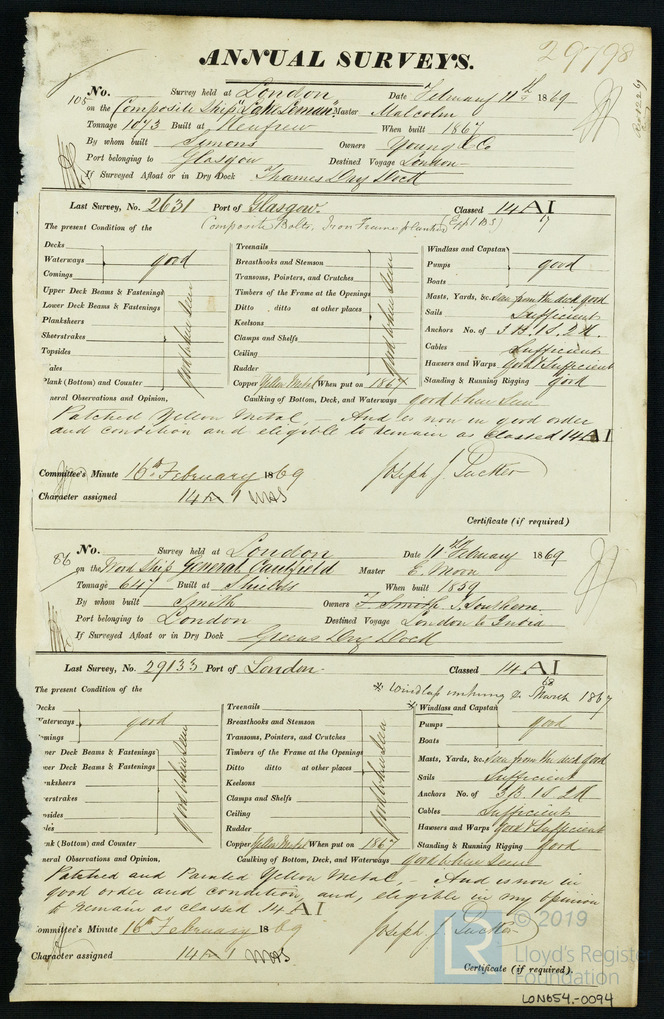 ANNUAL SURVEYS. 29798
105 No. Survey held at London Date February 11th 1869
on the Composite Ship "Lake Leman" Master Malcolm
Tonnage 1073 Built at Renfrew When built 1867
By whom built Simons Owners Young & Co
Port belonging to Glasgow Destined Voyage London
If Surveyed Afloat or in Dry Dock Thames Dry Dock
Last Survey, No. 2631 Port of Glasgow. Classed 14 A I
Composite Bolts, Iron Frame planked
The present Condition of the
Decks
Waterways good
Comings
Upper Deck Beams & Fastenings
Lower Deck Beams & Fastenings
Planksheers
Sheerstrakes
Topsides
ales
Plank (Bottom) and Counter
good where seen
Treenails
Breasthooks and Stemson
Transoms, Pointers, and Crutches
Timbers of the Frame at the Openings
Ditto ditto at other places
Keelsons
Clamps and Shelfs
Ceiling
Rudder
good where seen
Copper Yellow Metal When put on 1867
Windlass and Capstan
Pumps good
Boats
Masts, Yards, &c. seen from the deck good
Sails Sufficient
Anchors No. of 3 B. 1 S. 2 K.
Cables Sufficient
Hawsers and Warps Good & Sufficient
Standing & Running Rigging good
neral Observations and Opinion, Caulking of Bottom, Deck, and Waterways good where seen
Patched Yellow Metal, And is now in good order
and condition and eligible to remain as Classed 14 A I
Committee's Minute 16th February 1869 Joseph J. Tucker
Character assigned 14 A 1
Certificate (if required)
86 No. Survey held at London Date 11th February 1869
on the Wood Ship General Caulfield Master E. Morn
Tonnage 647 Built at Shields When built 1859
By whom built Smith Owners T. Smith
Port belonging to London Destined Voyage London to India
If Surveyed Afloat or in Dry Dock Greens Dry Dock
Last Survey, No. 29133 Port of London. Classed 14 A I
March 1867
The present Condition of the
Decks
Waterways good
omings
per Deck Beams & Fastenings
wer Deck Beams & Fastenings
nksheers
erstrakes
nsides
ales
nk (Bottom) and Counter
good where seen
Treenails
Breasthooks and Stemson
Transoms, Pointers, and Crutches
Timbers of the Frame at the Openings
Ditto ditto at other places
Keelsons
Clamps and Shelfs
Ceiling
Rudder
good where seen
Copper Yellow Metal When put on 1867
Windlass and Capstan
Pumps good
Boats
Masts, Yards, &c. seen from the deck good
Sails Sufficient
Anchors No. of 3 B. 1 S. 2 K
Cables Sufficient
Hawsers and Warps Good & Sufficient
Standing & Running Rigging good
neral Observations and Opinion, Caulking of Bottom, Deck, and Waterways good where seen
Patched and Painted Yellow Metal, And is now in
good order and condition, and, eligible in my opinion
to remain as classed 14 A I
ommittee's Minute 16th February 1869 Joseph J. Tucker
Character assigned 14 A 1
Certificate (if required).
LR © 2019
Lloyd's Register
Foundation
LON654-0094